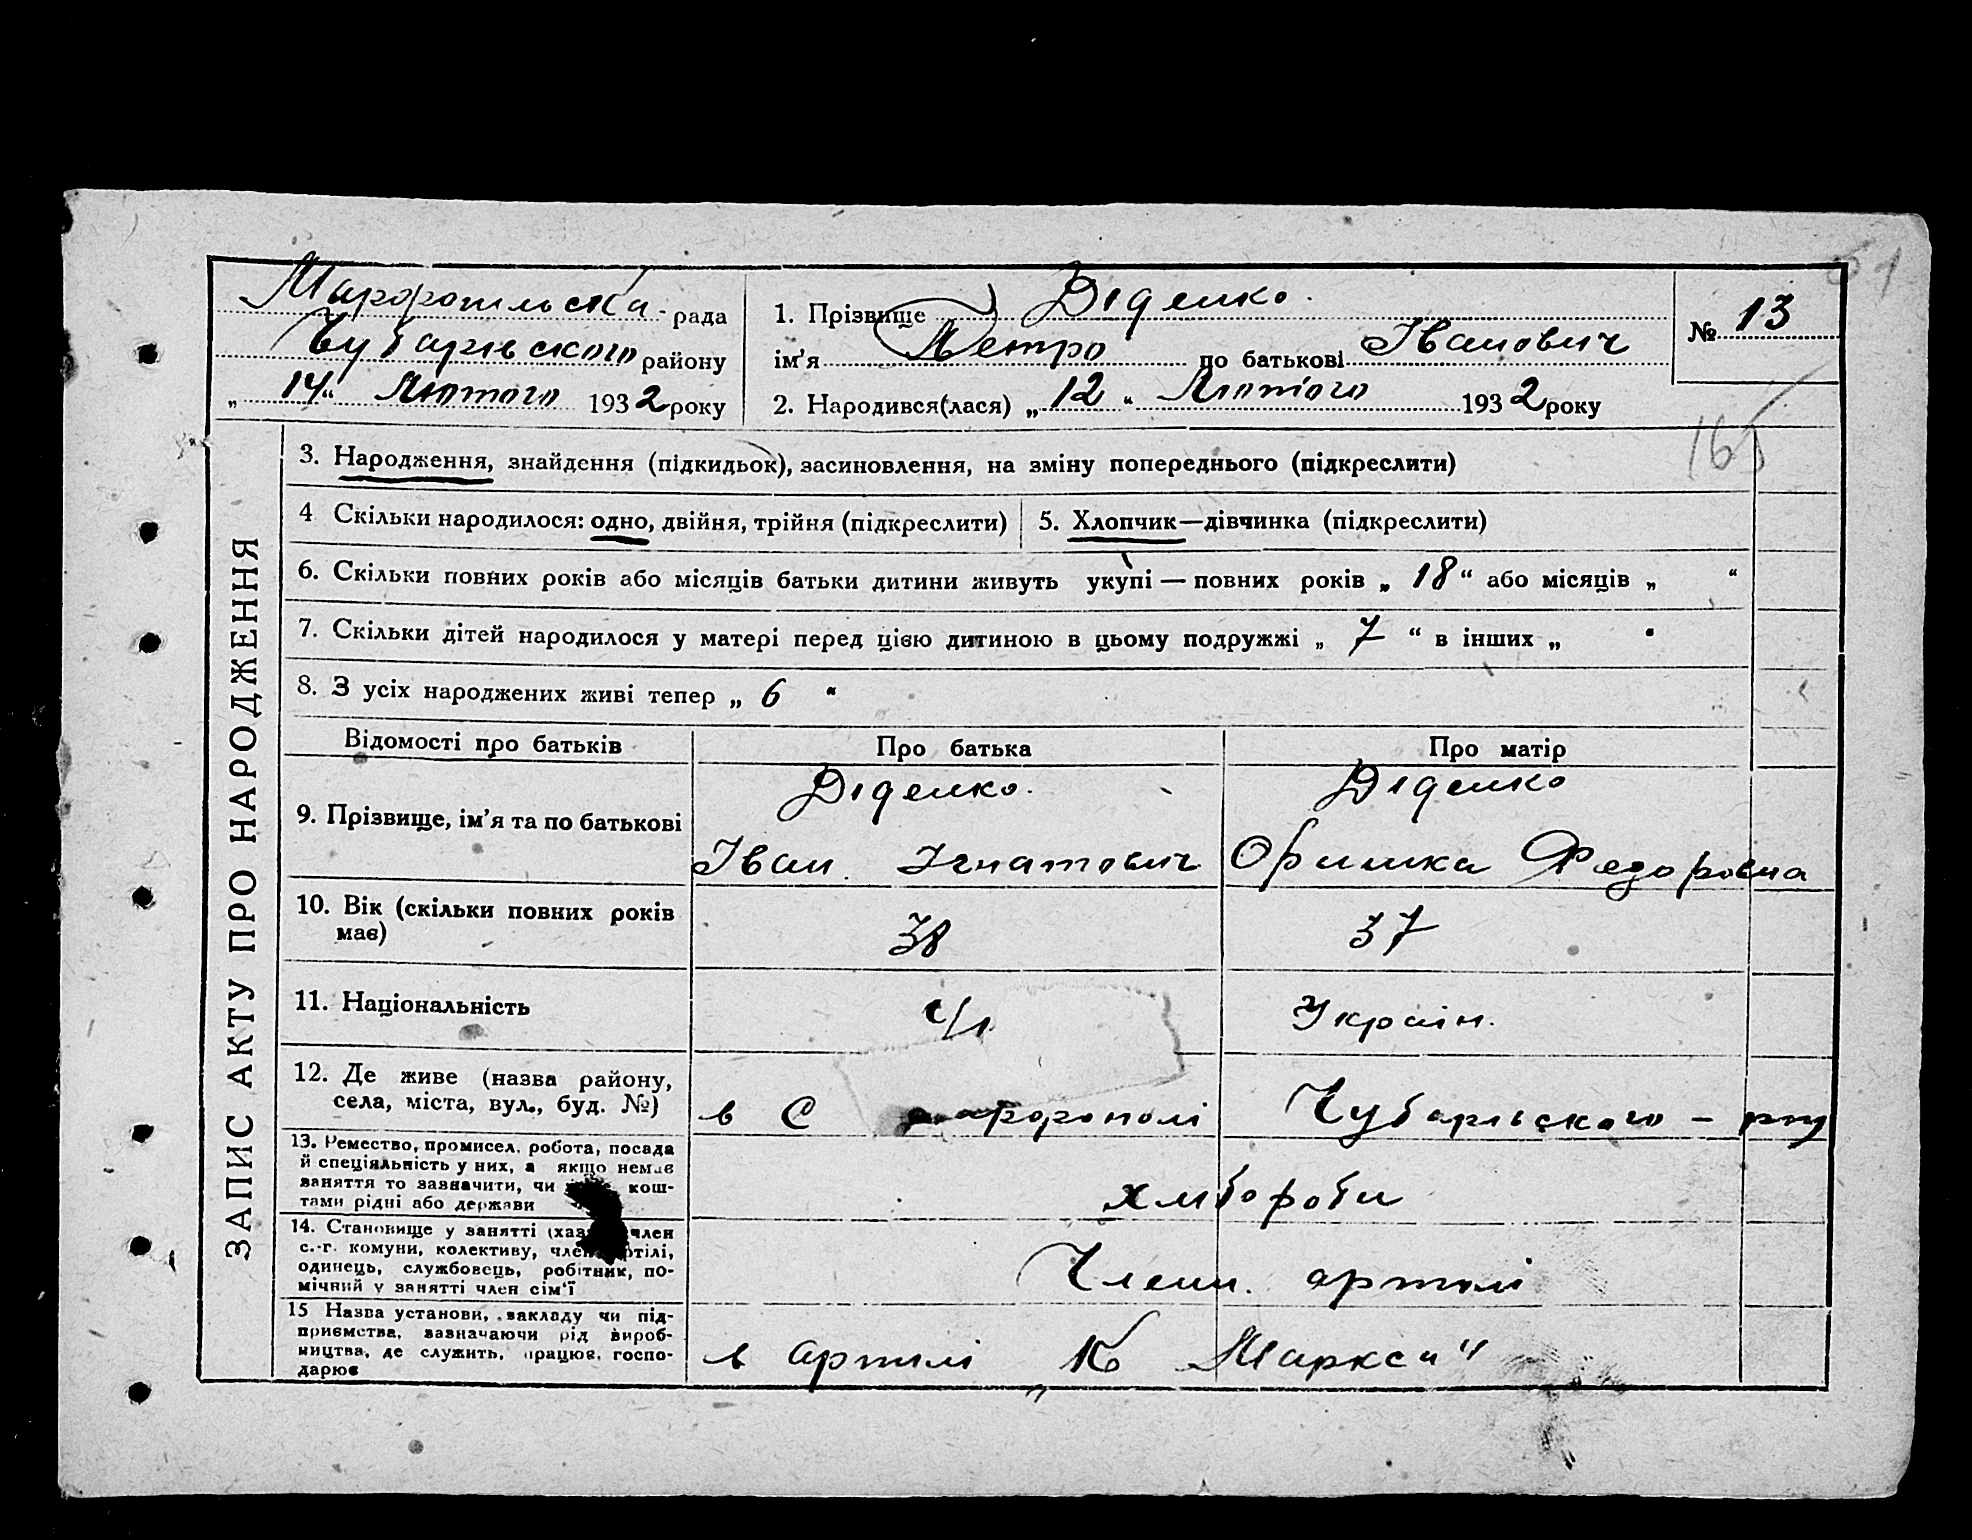 Марфопільска рада
Чубарівського району
„ 14 “ Лютого 1932 року
1. Прізвище Діденко.
ім’я Петро по батькові Іванович
2. Народився(лася) „ 12 “ Лютого 1932 року
№ 13
51
165
ЗАПИС АКТУ ПРО НАРОДЖЕННЯ
3. Народження, знайдення (підкидьок), засиновлення, на зміну попереднього (підкреслити)
4 Скільки народилося: одно, двійня, трійня (підкреслити)
5. Хлопчик—дівчинка (підкреслити)
6. Скільки повних років або місяців батьки дитини живуть укупі — повних років „ 18 “ або місяців „ “
7. Скільки дітей народилося у матері перед цією дитиною в цьому подружжі „ 7 “ в інших „ “
8. З усіх народжених живі тепер „ 6 “
Відомості про батьків
Про батька
Про матір
9. Прізвище, ім’я та по батькові
Діденко.
Іван Ігнатович
Діденко
Оришка Федоровна
10. Вік (скільки повних років
має)
38
37
11. Національність
Україн.
12. Де живе (назва району,
села, міста, вул., буд. №)
в С рфополі Чубарівського - рну
13. Ремество, промисел, робота, посада
й спеціяльність у них, а якщо немає
заняття то зазначити, чи кош-
тами рідні або держави
хлібороби
14. Становище у занятті (хаз член
с.-г. комуни, колективу, член ртілі,
одинець, службовець, робітник, по-
мічний у занятті член сім’ї
Члени артілі
15 Назва установи, закладу чи під-
приємства, зазначаючи рід вироб-
ництва, де служить, працює, госпо-
дарює
в артілі „К Маркса“